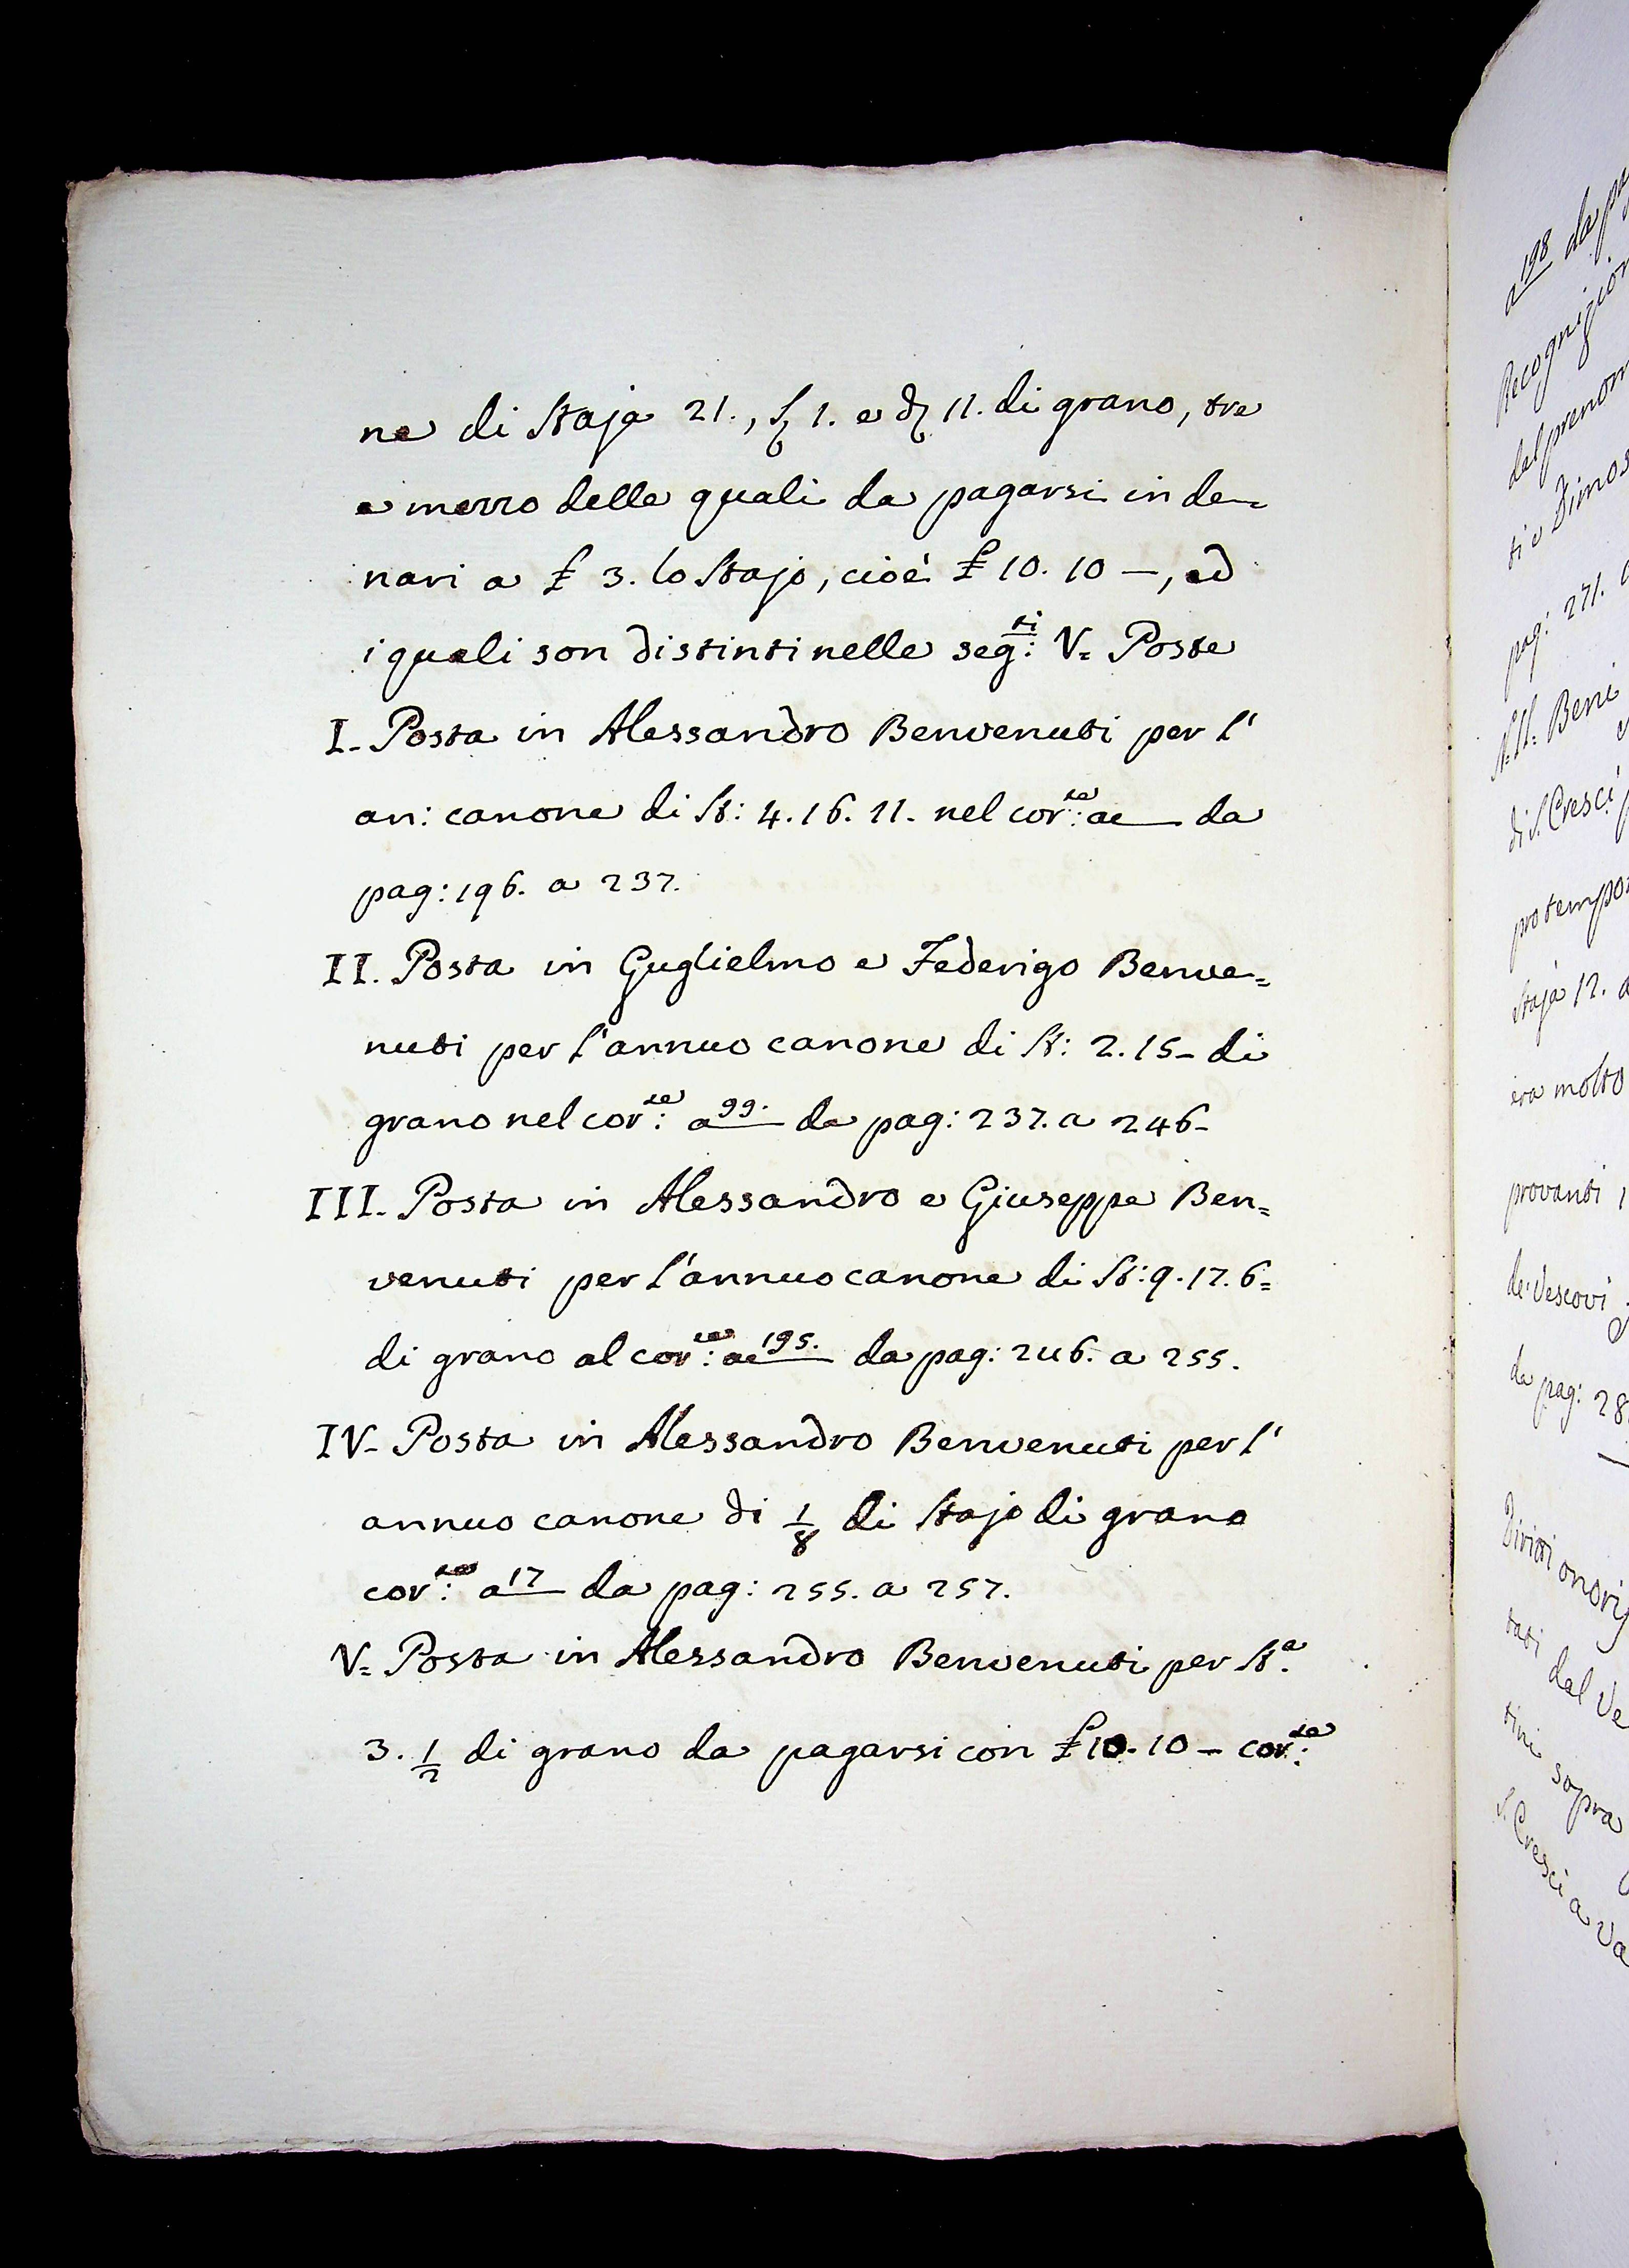 ne di Staja 21., ſ 1. e d 11. di grano, tre
e mezzo delle quali da pagarsi in de=
nari a £ 3. lo Stajo, cioè £ 10. 10 —, ed
i quali son distinti nelle seg:ti V= Poste
I. Posta in Alessandro Benvenuti per l'
an: canone di St: 4. 16. 11. nel cor:te ae da
pag: 196. a 237.
II. Posta in Guglielmo e Federigo Benve=
nuti per l'annuo canone di St: 2. 15 - di
grano nel cor:te a 99. da pag: 237. a 246-
III. Posta in Alessandro e Giuseppe Ben=
venuti per l'annuo canone di St: 9. 17. 6=
di grano al cor:te ae 195. da pag: 246. a 255.
IV- Posta in Alessandro Benvenuti per l'
annuo canone di 1/8 di Stajo di grano
cor:te a 17 da pag: 255. a 257.
V= Posta in Alessandro Benvenuti per St.a
3. 1/2 di grano da pagarsi con £ 10. 10 - cor:te
a 198 da
Recognizion
del prenom
ti e Dimos
pag: 271.
Beni
di S. Cresci
pro tempor
Staja 12.
era molto
provanti
de' Vescovi
da pag: 28
Diritti onorif
tati dal Ve
tini sopra
S. Cresci a Va